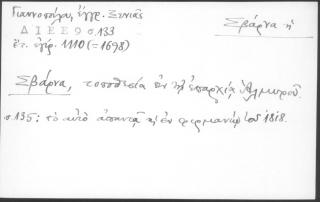 Γιαννοπούλου, ἔγγρ. Ξυνιάς
Σβάρνα ἡ
ΔΙΕΕ 9 σ.133
ἔτ. ἐγγρ. 1110 (= 1698)
Σβάρνα, τοποθεσία ἐν τῇ ἐπαρχίᾳ Ἁλμυροῦ.
σ. 135: τὸ αὐτὸ ἀπαντᾷ κ' ἐν φιρμανίῳ τοῦ 1818.